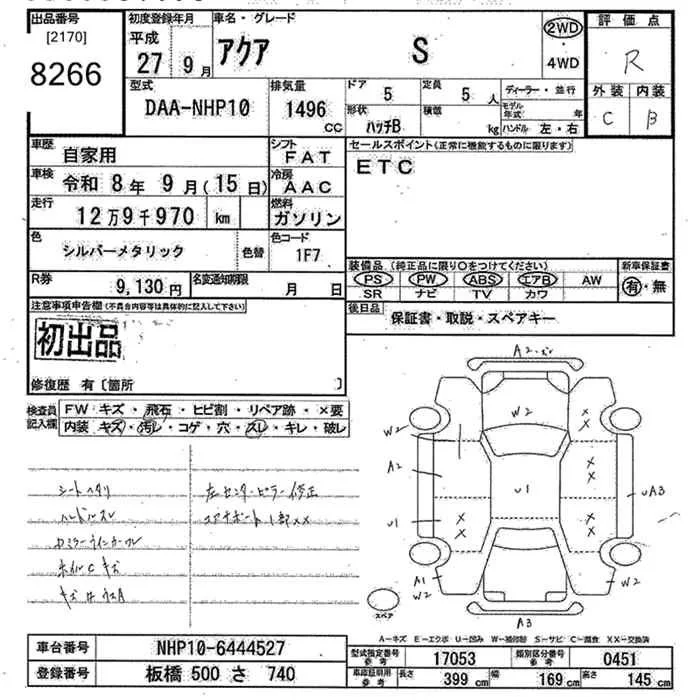 出品番号 初度登録年月 車名・グレード 評価点
[2170] 平成 アクア S 2WD
8266 27 9月 ・4WD R
型式 排気量 ドア 定員 ディーラー・並行 外装 内装
DAA-NHP10 1496 CC 5 5人 モデル年式 年 C B
形状 積載
ハッチB kg ハンドル 左・右
車歴 自家用 シフト FAT セールスポイント(正常に機能するものに限ります)
車検 令和 8年 9月(15日) 冷房 AAC ETC
走行 12万9千970 km 燃料 ガソリン
色 シルバーメタリック 色替 色コード 1F7
装備品(純正品に限り○をつけてください) 新車保証書
R券 9,130円 名変通知期限 月 日 PS PW ABS エアB AW 有・無
SR ナビ TV カワ
注意事項申告欄(不具合内容等は具体的に記入して下さい) 後日品 保証書・取説・スペアキー
初出品
修復歴 有〔箇所 〕
検査員 FW キズ・飛石・ヒビ割・リペア跡・×要
記入欄 内装 キズ・汚レ・コゲ・穴・スレ・キレ・破レ
A2
W2
W2 × ×
A2 × ×
U1 UA3
U1 × × × ×
A1 W2 W2
スペア
A3
シートヘタリ 左センターピラー修正
ハンドルスレ コアサポート1部××
ドアミラーウインカーワレ
ホイルCキズ
A-キズ E-エクボ U-凹み W-補修跡 S-サビ C-腐食 XX-交換済
車台番号 NHP10-6444527 型式指定番号 参考 17053 類別区分番号 参考 0451
登録番号 板橋 500 さ 740 車庫証明用 参考 長さ 399 cm 幅 169 cm 高さ 145 cm